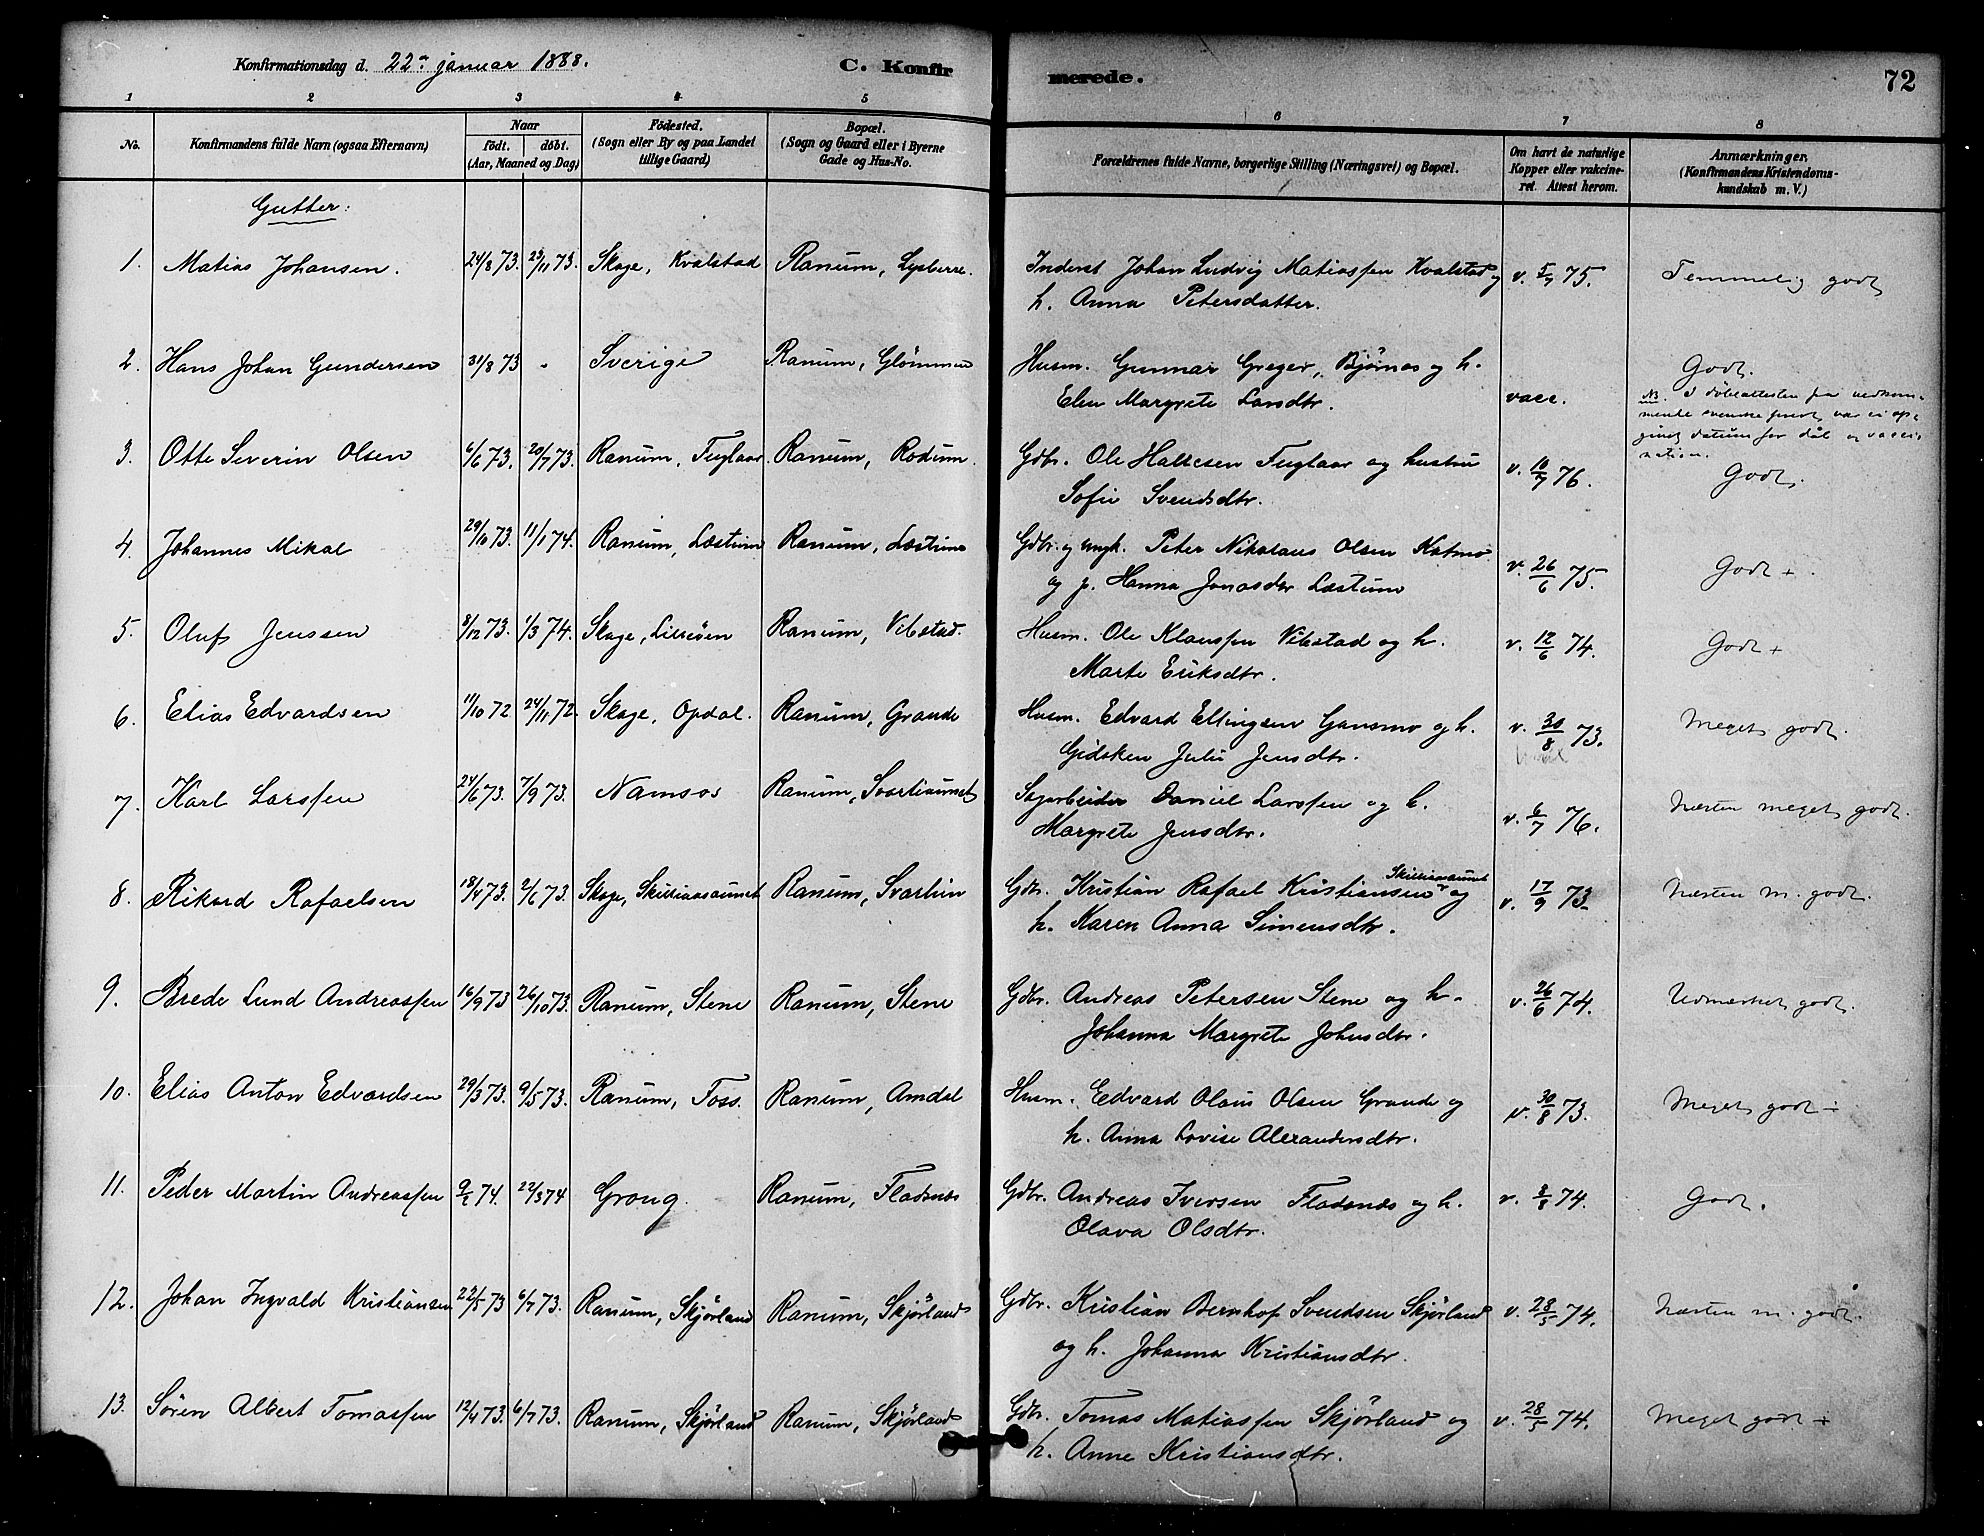 Konfirmationsdag d. 22n januar 1888.
C. Konfirmerede.
72
1 2 3 4 5 6 7 8
No.
Konfirmandens fulde Navn (ogsaa Efternavn)
Naar
födt. döbt.
(Aar, Maaned og Dag)
Födested.
(Sogn eller By og paa Landet
tillige Gaard)
Bopæl.
(Sogn og Gaard eller i Byerne
Gade og Hus-No.
Forældrenes fulde Navne, borgerlige Stilling (Næringsvei) og Bopæl.
Om havt de naturlige
Kopper eller vakcine-
ret. Attest herom.
Anmærkninger.
(Konfirmandens Kristendoms-
kundskab m. V.)
Gutter:
1. Matias Johansen. 24/8 73. 23/11 73. Skage, Kvalstad Ranum, Inderst Johan Ludvig Matiassen Kvalstad og v. 5/7 75. Temmelig godt
h. Anna Petersdatter.
2. Hans Johan Gundersen 31/8 73 - Sverige Ranum, Glömmen Husm. Gunnar Greger, Bjørnes og h. vacc. Godt.
Elen Margrete Larsdtr.
NB. I döbeattesten fra vedkom-
mende svenske prest var ei op-
givet datum for dåb og vacci-
nation.
3. Otte Severin Olsen 6/6 73. 20/7 73. Ranum, Fuglaar Ranum, Rodum. Gdbr. Ole Hallesen Fuglaar og hustru v. 10/7 76. Godt.
Sofie Svendsdtr.
4. Johannes Mikal 29/10 73. 11/1 74. Ranum, Læstum Ranum, Læstum Gdbr. og ungk. Peter Nikolaus Olsen Katmo v. 26/6 75. Godt +.
og p. Hanna Jonasdtr Læstum
5. Oluf Jenssen 8/12 73. 1/3 74. Skage, Lilleöen Ranum, Vibstad. Husm. Ole Klaussen Vibstad og h. v. 12/6 74. Godt +
Marte Eriksdtr.
6. Elias Edvardsen 11/10 72 24/11 72. Skage, Opdal. Ranum, Grande Husm. Edvard Ellingsen Gansmo og h. v. 30/8 73. Meget godt.
Gidsken Julie Jensdtr.
7. Karl Larssen 24/6 73. 7/9 73. Namsos Ranum, Svartiaunet Daniel Larssen og h. v. 6/7 76. Næsten meget godt.
Margrete Jensdtr.
8. Rikard Rafaelsen 18/4 73. 2/6 73. Skage, Skilliaasaunet Ranum, Svartiin Gdbr. Kristian Rafael Kristiansen Skilliaasaunet og v. 17/9 73. Næsten m. godt.
h. Karen Anna Simensdtr.
9. Brede Lund Andreassen 16/9 73 26/10 73. Ranum, Stene Ranum, Stene Gdbr. Andreas Petersen Stene og h. v. 26/6 74. Udmærket godt.
Johanna Margrete Johnsdtr.
10. Elias Anton Edvardsen 29/3 73. 9/5 73. Ranum, Foss. Ranum, Amdal Husm. Edvard Olaus Olsen Grande og v. 30/8 73. Meget godt ÷
h. Anna Lovise Alexandersdtr.
11. Peder Martin Andreassen 9/2 74. 22/3 74 Grong. Ranum, Fladenæs Gdbr. Andreas Iversen Fladenæs og h. v. 8/8 74. Godt.
Olava Olsdtr.
12. Johan Ingvald Kristiansen 22/5 73 6/7 73. Ranum, Skjörland Ranum, Skjörland Gdbr. Kristian Bernhof Svendsen Skjörland v. 28/5 74. Næsten m. godt.
og h. Johanna Kristiansdtr.
13. Sören Albert Tomassen 12/4 73. 6/7 73. Ranum, Skjörland Ranum, Skjörland Gdbr. Tomas Matiassen Skjörland og v. 28/5 74. Meget godt +
h. Anne Kristiansdtr.